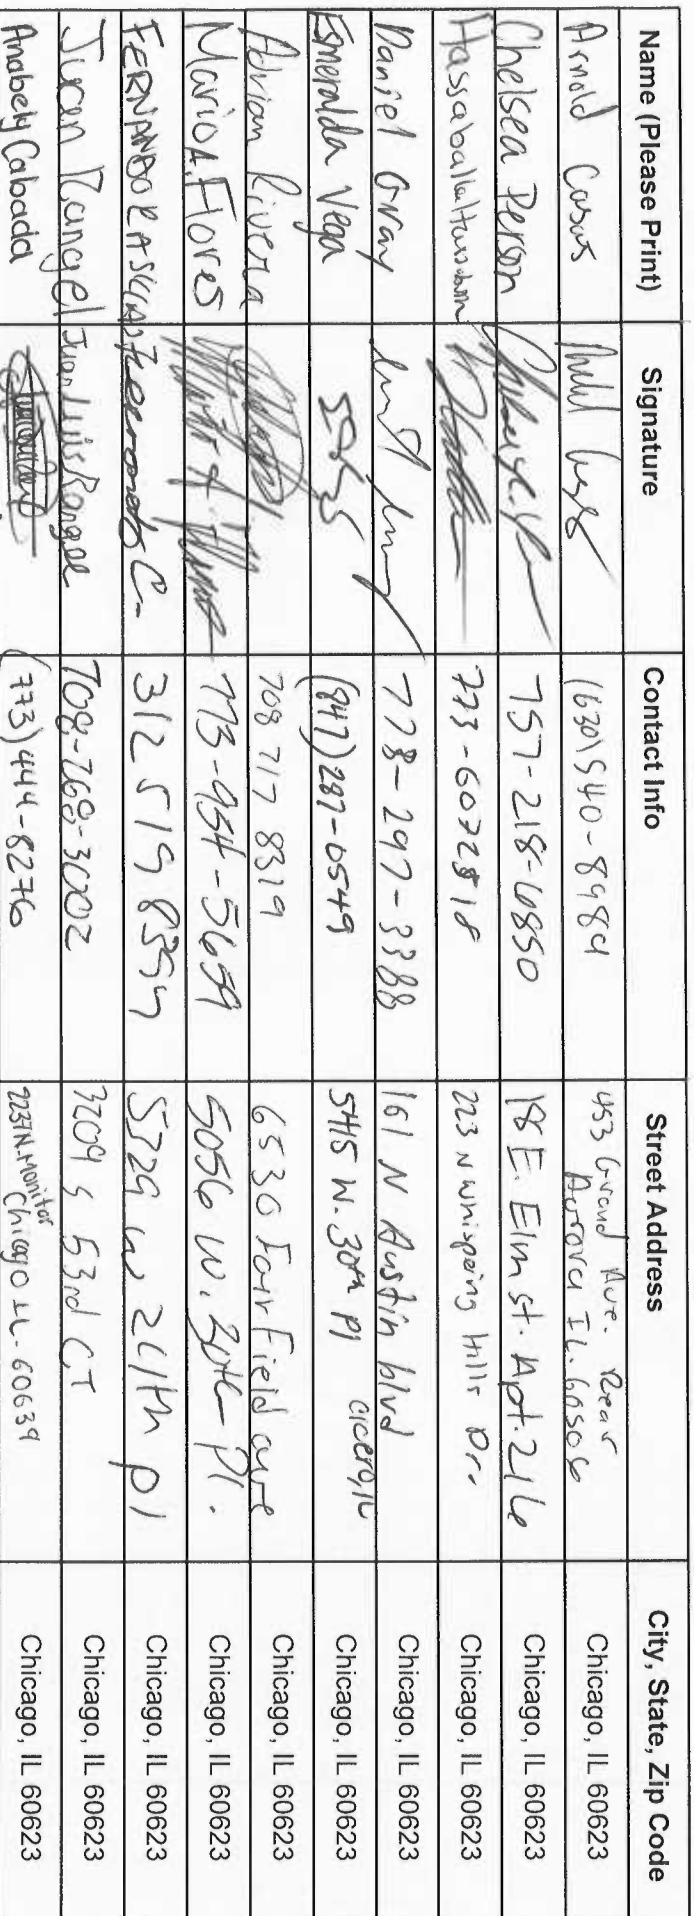 Name (Please Print) Signature Contact Info Street Address City, State, Zip Code
Arnold Casas (630) 540-8984 453 Grand Ave. Rear Aurora IL. 60506 Chicago, IL 60623
Chelsea Person 757-218-6850 18 E. Elm st. Apt. 216 Chicago, IL 60623
773-6072818 223 N Whispering Hills Dr. Chicago, IL 60623
Daniel Gray 778-297-3388 161 N Austin blvd Chicago, IL 60623
Esmeralda Vega (847) 287-0549 5415 W. 30th Pl Cicero, IL Chicago, IL 60623
Adrian Rivera 708 717 8319 6530 Fairfield ave Chicago, IL 60623
Mario A. Flores 773-934-5659 5056 W. 30th Pl. Chicago, IL 60623
FERNANDO Fernando C. 312 519 8354 5329 W 24th pl Chicago, IL 60623
Juan Rangel Juan Luis Rangel 708-768-3002 3209 S 53rd CT Chicago, IL 60623
Anabely Cabada (773) 444-8276 2237 N. Monitor Chicago IL. 60639 Chicago, IL 60623